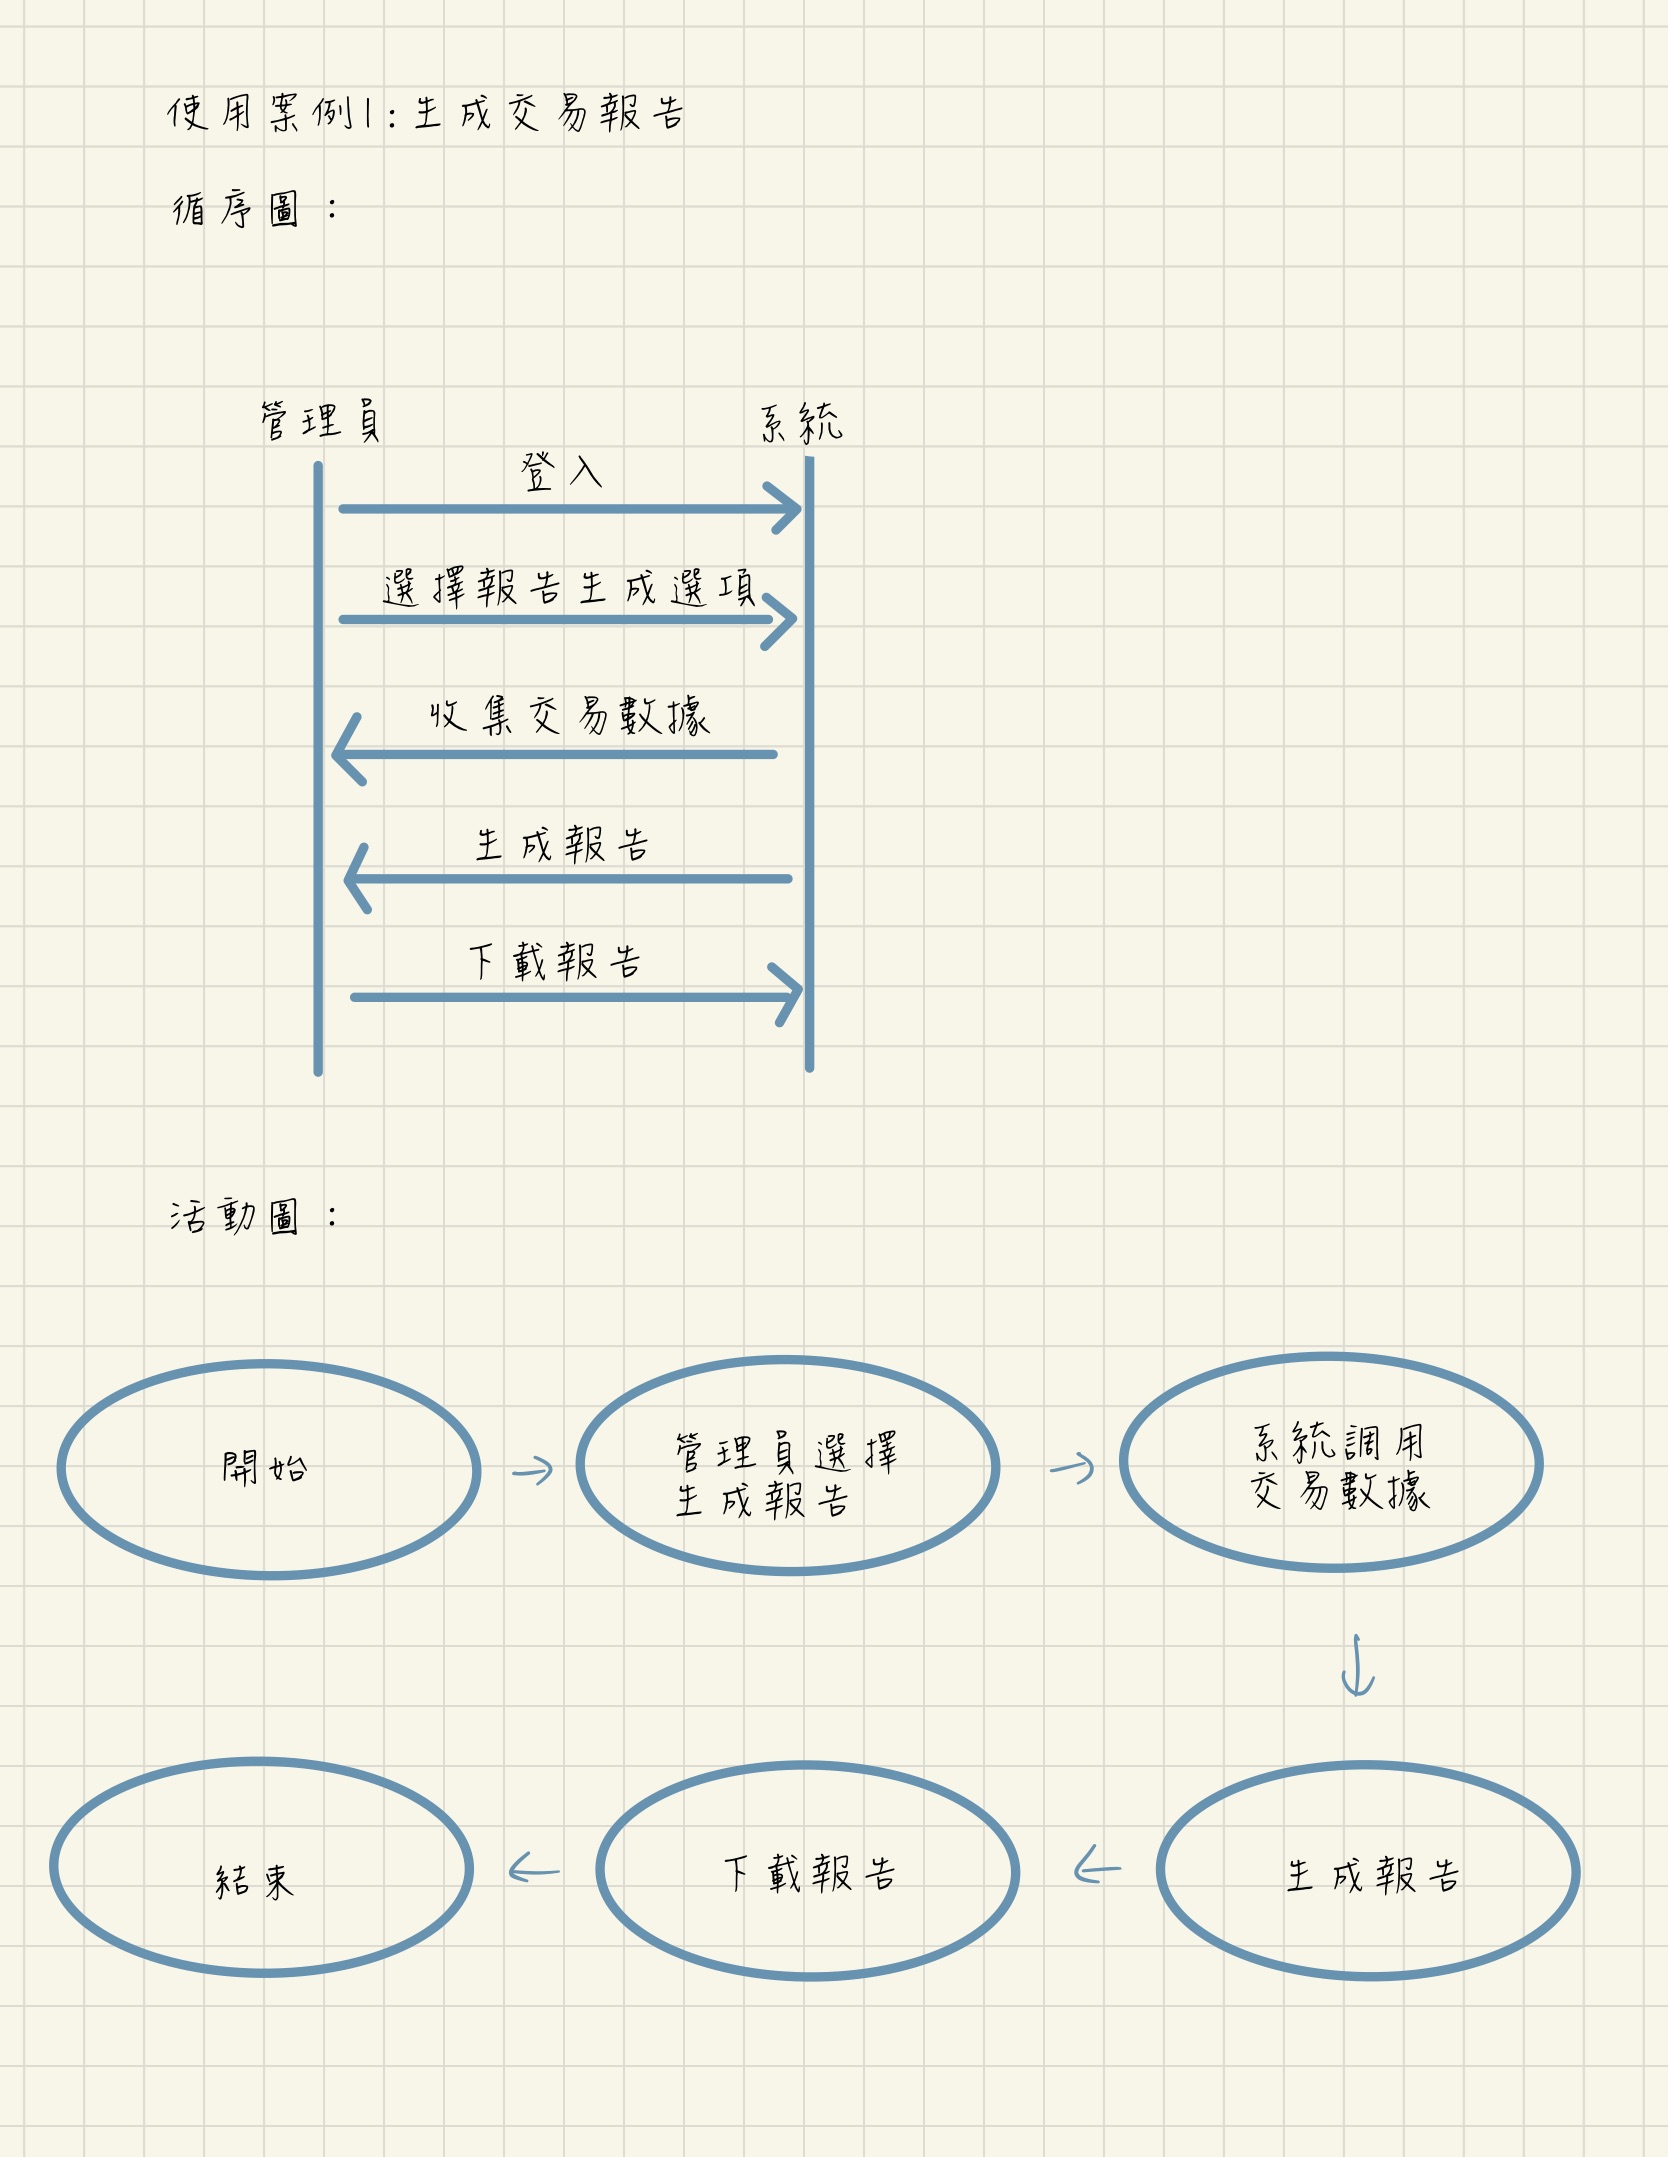 使用案例1:生成交易報告
循序圖：
管理員
系統
登入
選擇報告生成選項
收集交易數據
生成報告
下載報告
活動圖：
開始
管理員選擇
生成報告
系統調用
交易數據
結束
下載報告
生成報告